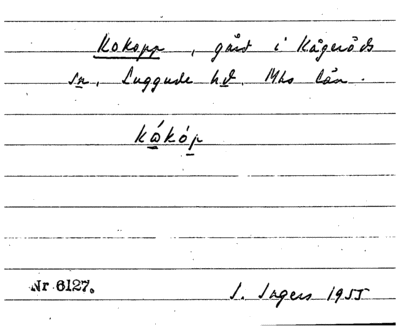 Kokopp, gård i Kågeröds
sn, Luggude hd, Mhs län.
kǻkóp
Nr 6127.
I. Ingers 1955